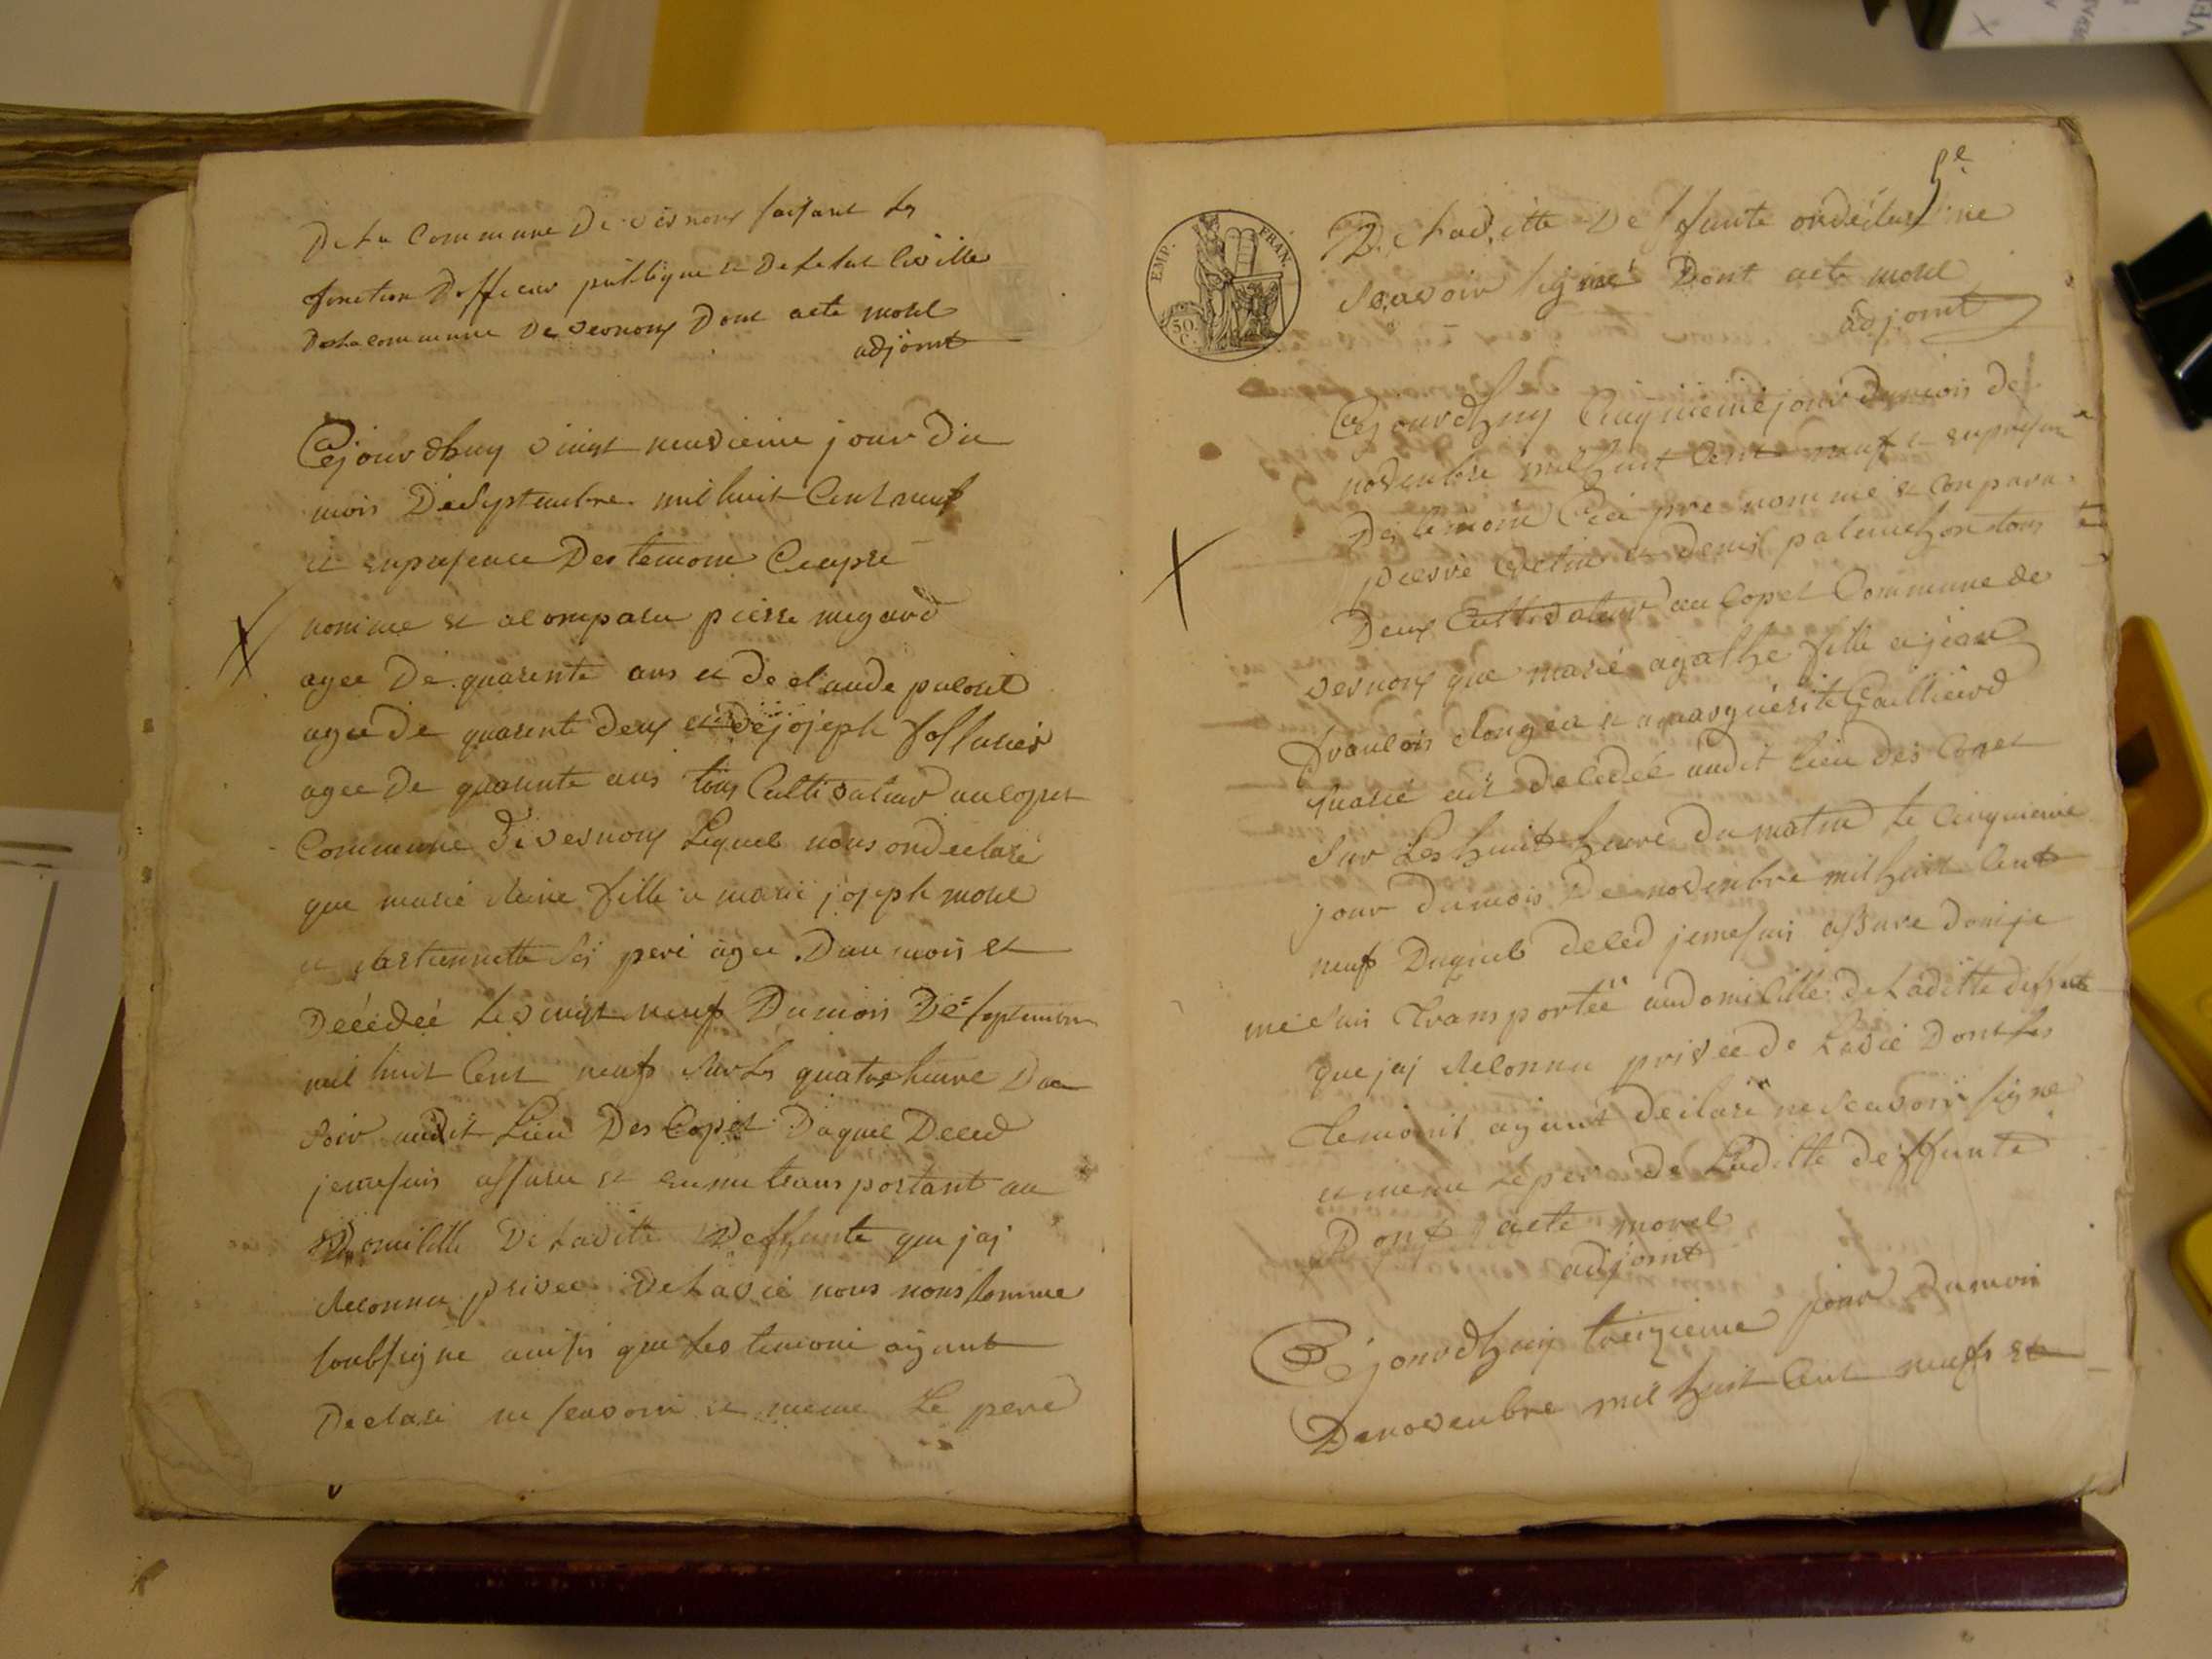 De La Commune De vernoux faisant Les
fonction Dofficier publique et De Letat Civille
De La commune De vernoux Dont acte morel
adjoint
Cejourdhuy vingt neuvieme jour du
mois De Septembre mil huit Cent neuf
et enpresence Des temoins Ciapré
nomme et a comparu pierre migard
agee De quarente ans et De claude
agee De quarente deux et De joseph
agee De quarente ans tous Cultivateur au copet
Commune De vernoux Lequel nous on declaré
que marie Reine fille a marie joseph morel
et pere agee Dun mois et
Décédée Le vingt neuf Du mois De septembre
mil huit Cent neuf sur Les quatre heure Du
soir audit Lieu Des Copet Duquel Deced
jemesuis assure et enme transportant au
Domicille De Ladite Deffunte que jaj
Reconnu privee De La vie nous nous somme
soubsigne ainsis que Les temoin ayant
Declare ne seavoir et meme Le pere
5e
EMP. FRAN.
50. C.
De Laditte Deffunte on déclare ne
Seavoir signé Dont acte morel
adjoint
Cejourdhuy Cinquieme jour Dumois De
novembre mil huit Cent neuf et enpresence
Des temoin Ciai pre nomme et Conparu
pierre et denis paleuchon tous
Deux Cultivateur au Copet Commune de
vernoux que marie agathe fille a jean
francois clongea et a marguerite Gaillierd
marie est Decedée audit lieu des Copet
Sur Les huit heure Du matin Le Cinquieme
jour Dumois De novembre mil huit Cent
neuf Duquel deced jemesuis assure Don je
me suis transportée au domicille de Laditte deffunte
que jaj Reconnu privée De La vie Dont Les
temoins ayant declare ne Seavoir signe
et meme Le pere De Laditte deffunte
Dont acte morel
adjoint
Cejourdhuy treizieme jour Dumois
De novembre mil huit Cent neuf et